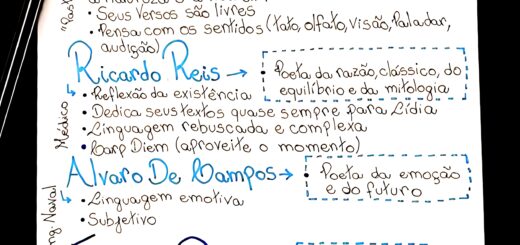 • Seus versos são livres
• Pensa com os sentidos (tato, olfato, visão, Paladar, audição)
Ricardo Reis →
• Poeta da razão, clássico, do equilíbrio e da mitologia
Médico
• Reflexão da existência
• Dedica seus textos quase sempre para Lídia
• Linguagem rebuscada e complexa
• Carp Diem (aproveite o momento)
Alvaro De Campos →
• Poeta da emoção e do futuro
ng. Naval
• Linguagem emotiva
• Subjetivo